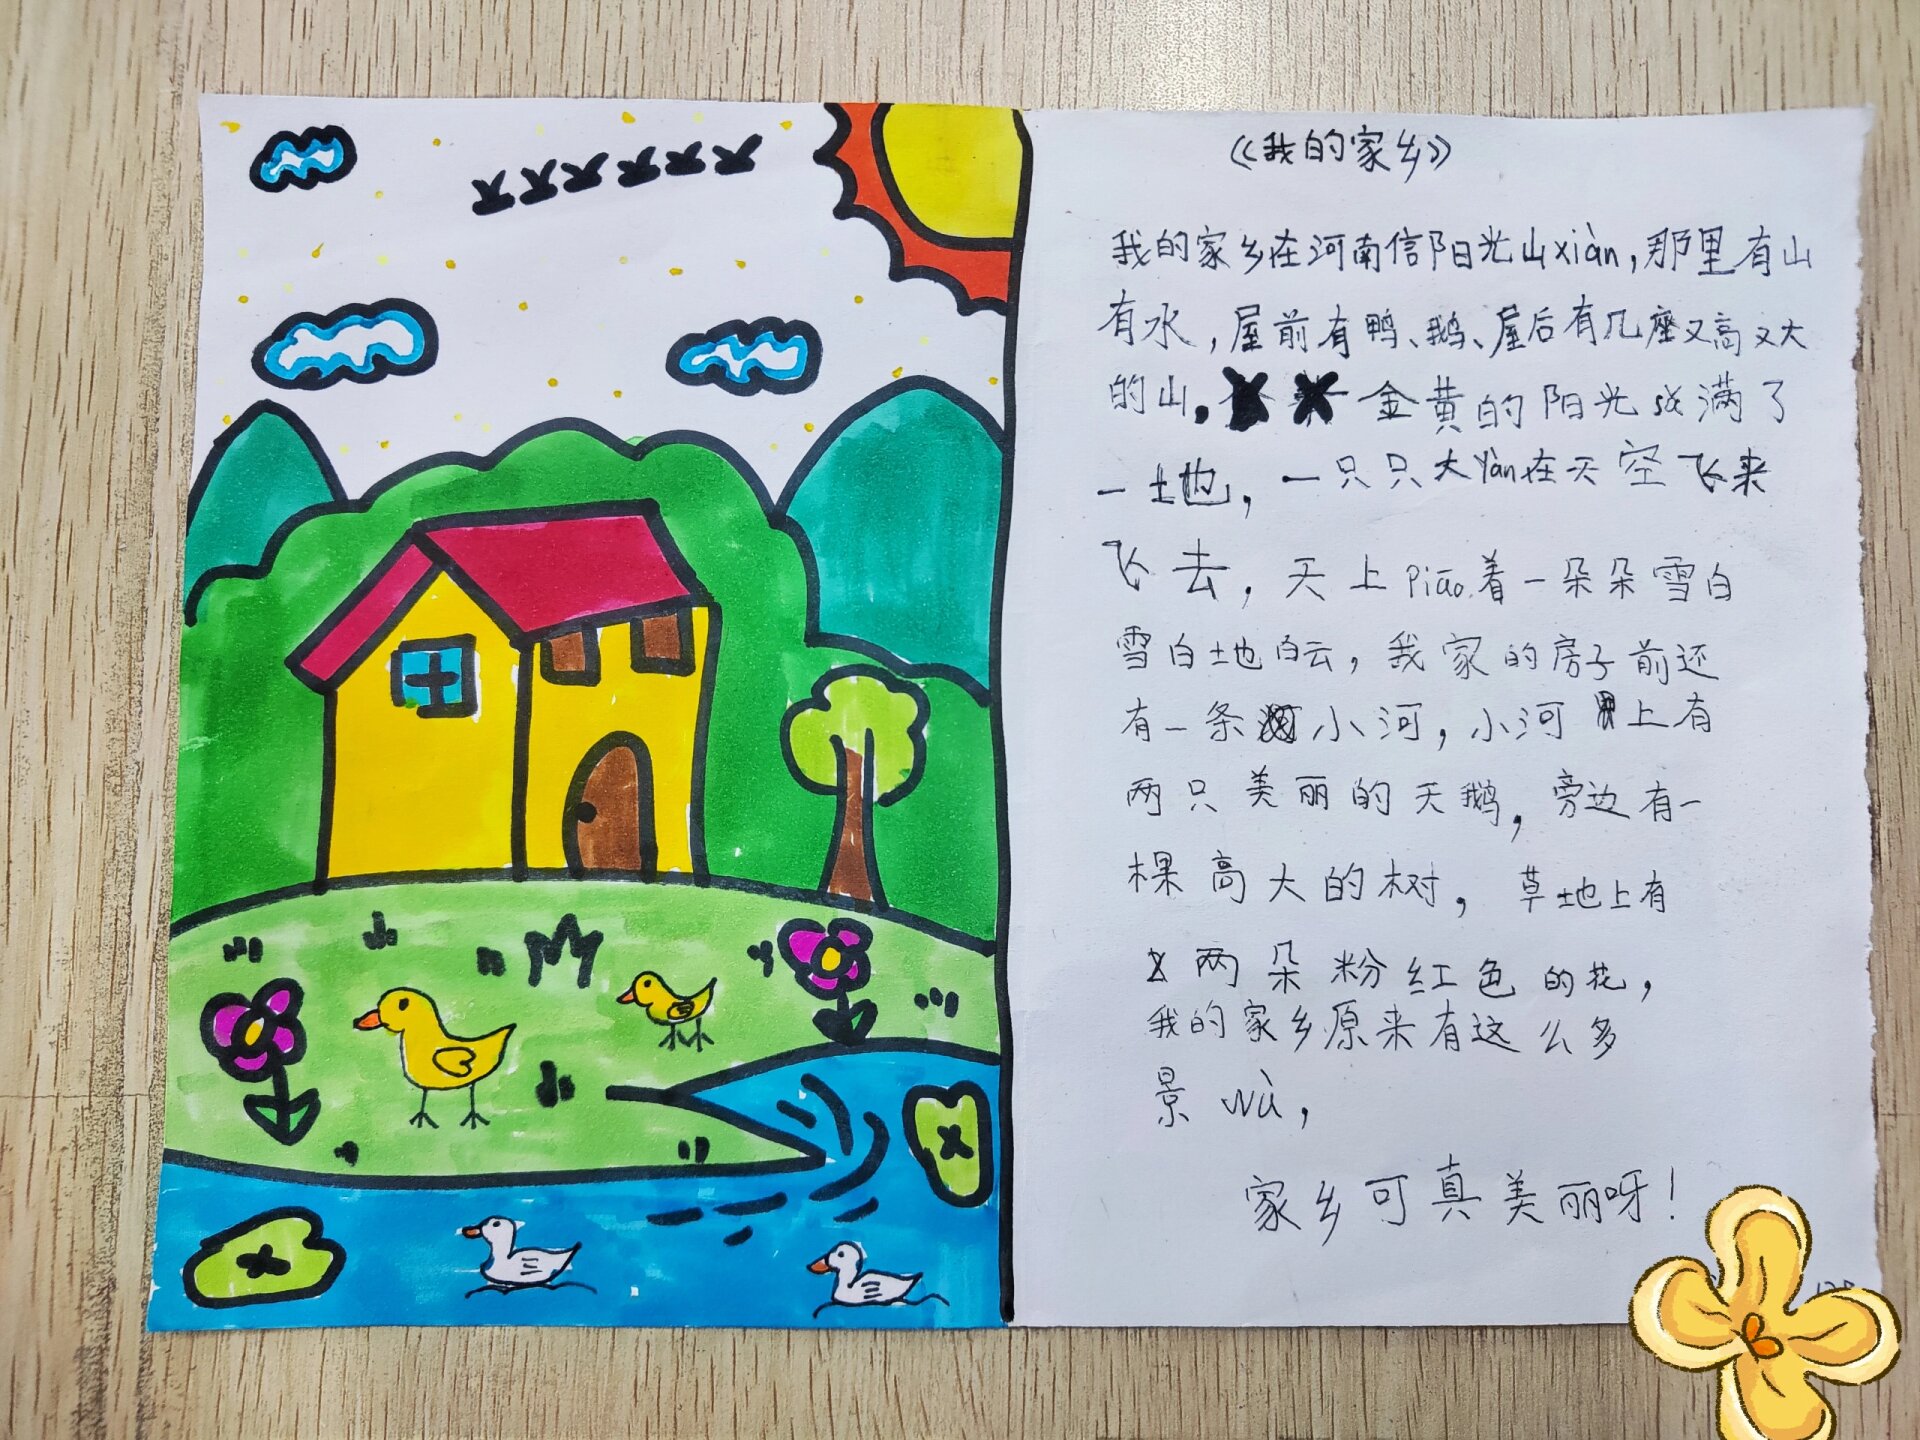 《我的家乡》
我的家乡在河南信阳光山xiàn,那里有山
有水,屋前有鸭、鹅、屋后有几座又高又大
的山。金黄的阳光sǎ满了
一土地,一只只大Yàn在天空飞来
飞去,天上Piāo着一朵朵雪白
雪白土地白云,我家的房子前还
有一条小河,小河上有
两只美丽的天鹅,旁边有一
棵高大的树,草地上有
两朵粉红色的花,
我的家乡原来有这么多
景wù,
家乡可真美丽呀!